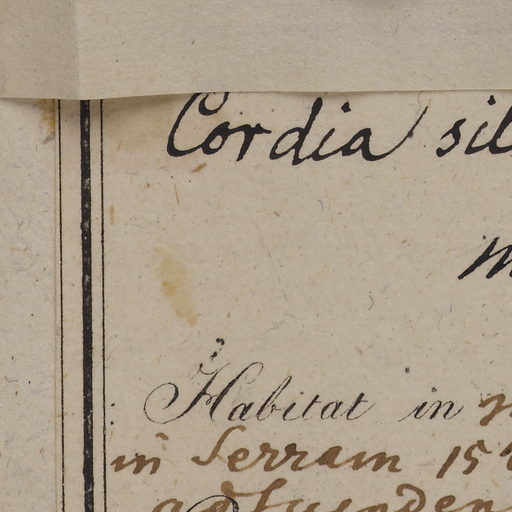 Cordia sil
m
Habitat in
in Serram 15